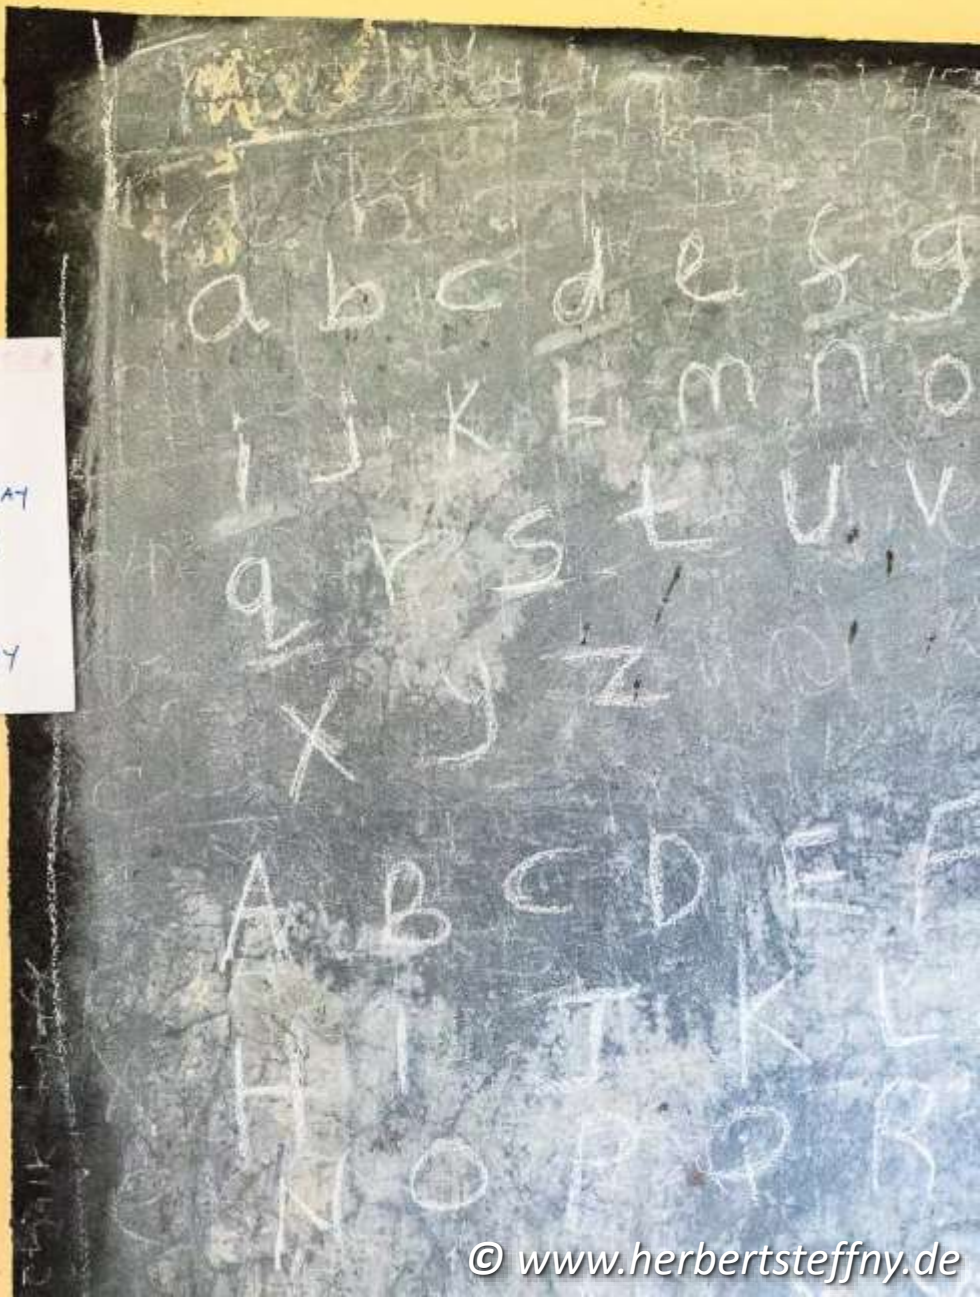 a b c d e f g
i j k l m n o
q r s t u v
x y z
A B C D E F
H I J K L
N O P Q R
AY
Y
Chalk
© www.herbertsteffny.de